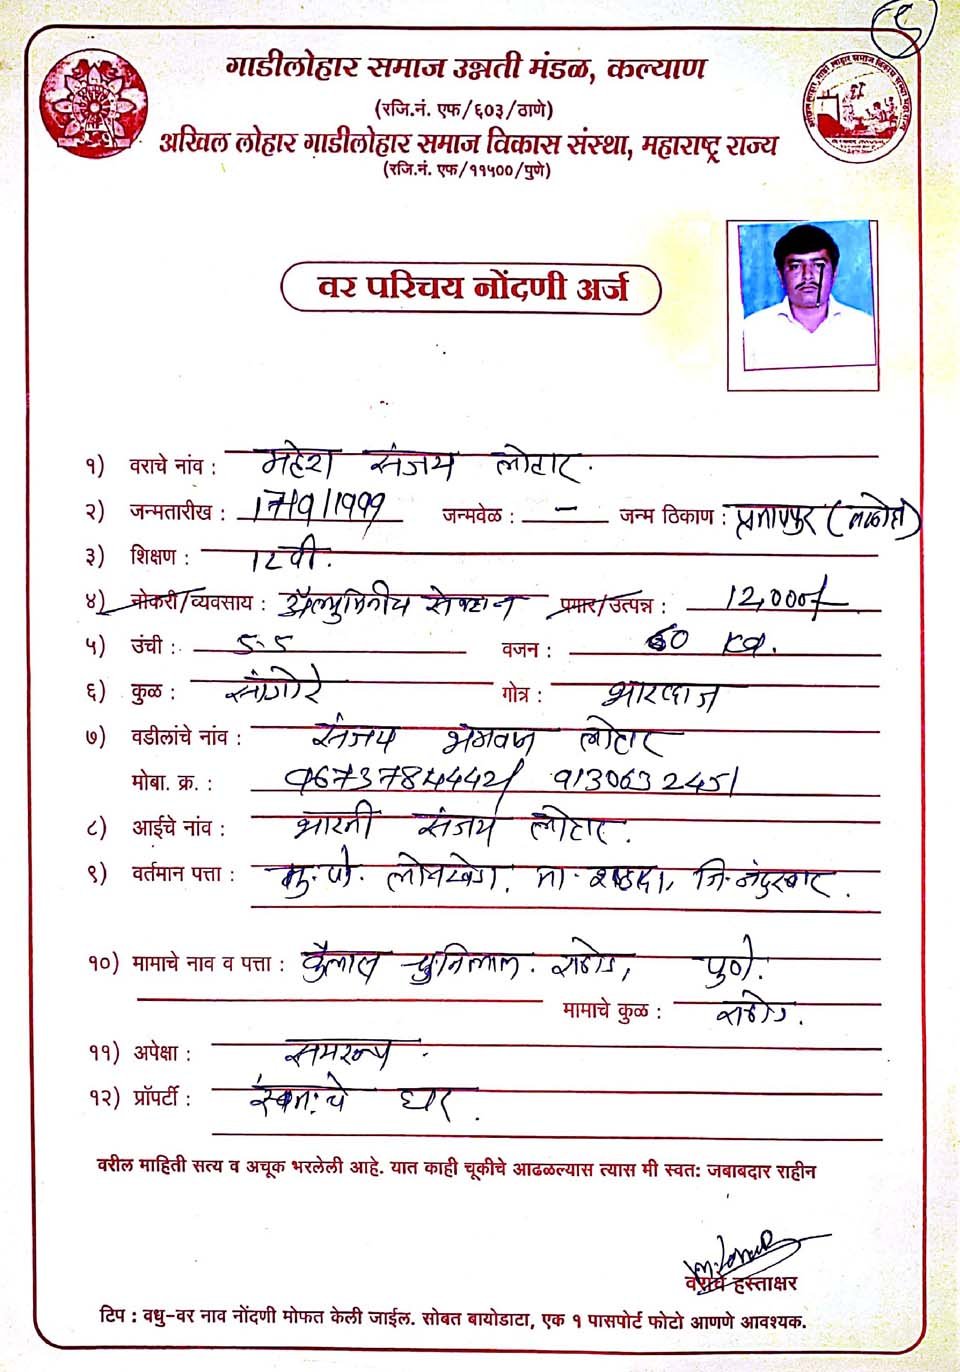 ५
गाडीलोहार समाज उन्नती मंडळ, कल्याण
(रजि.नं. एफ/६०३/ठाणे)
अखिल लोहार गाडीलोहार समाज विकास संस्था, महाराष्ट्र राज्य
(रजि.नं. एफ/११५००/पुणे)
वर परिचय नोंदणी अर्ज
१) वराचे नांव : महेश संजय लोहार.
२) जन्मतारीख : 17/9/1999 जन्मवेळ : – जन्म ठिकाण : प्रतापपुर (तळोदा)
३) शिक्षण : 12वी.
४) नोकरी/व्यवसाय : ॲल्युमिनीय सेक्शन पगार/उत्पन्न : 12,000/-
५) उंची : ५.५ वजन : 60 kg.
६) कुळ : सांगोरे गोत्र : भारद्वाज
७) वडीलांचे नांव : संजय भगवान लोहार
मोबा. क्र. : 9673784442/ 9130632451
८) आईचे नांव : भारती संजय लोहार.
९) वर्तमान पत्ता : मु.पो. लोणखेडा, ता. शहादा, जि. नंदुरबार.
१०) मामाचे नाव व पत्ता : कैलास चुनिलाल. राठोड, पुणे.
मामाचे कुळ : राठोड.
११) अपेक्षा : समरूप.
१२) प्रॉपर्टी : स्वतःचे घर.
वरील माहिती सत्य व अचूक भरलेली आहे. यात काही चूकीचे आढळल्यास त्यास मी स्वत: जबाबदार राहीन
वराचे हस्ताक्षर
टिप : वधु-वर नाव नोंदणी मोफत केली जाईल. सोबत बायोडाटा, एक १ पासपोर्ट फोटो आणणे आवश्यक.